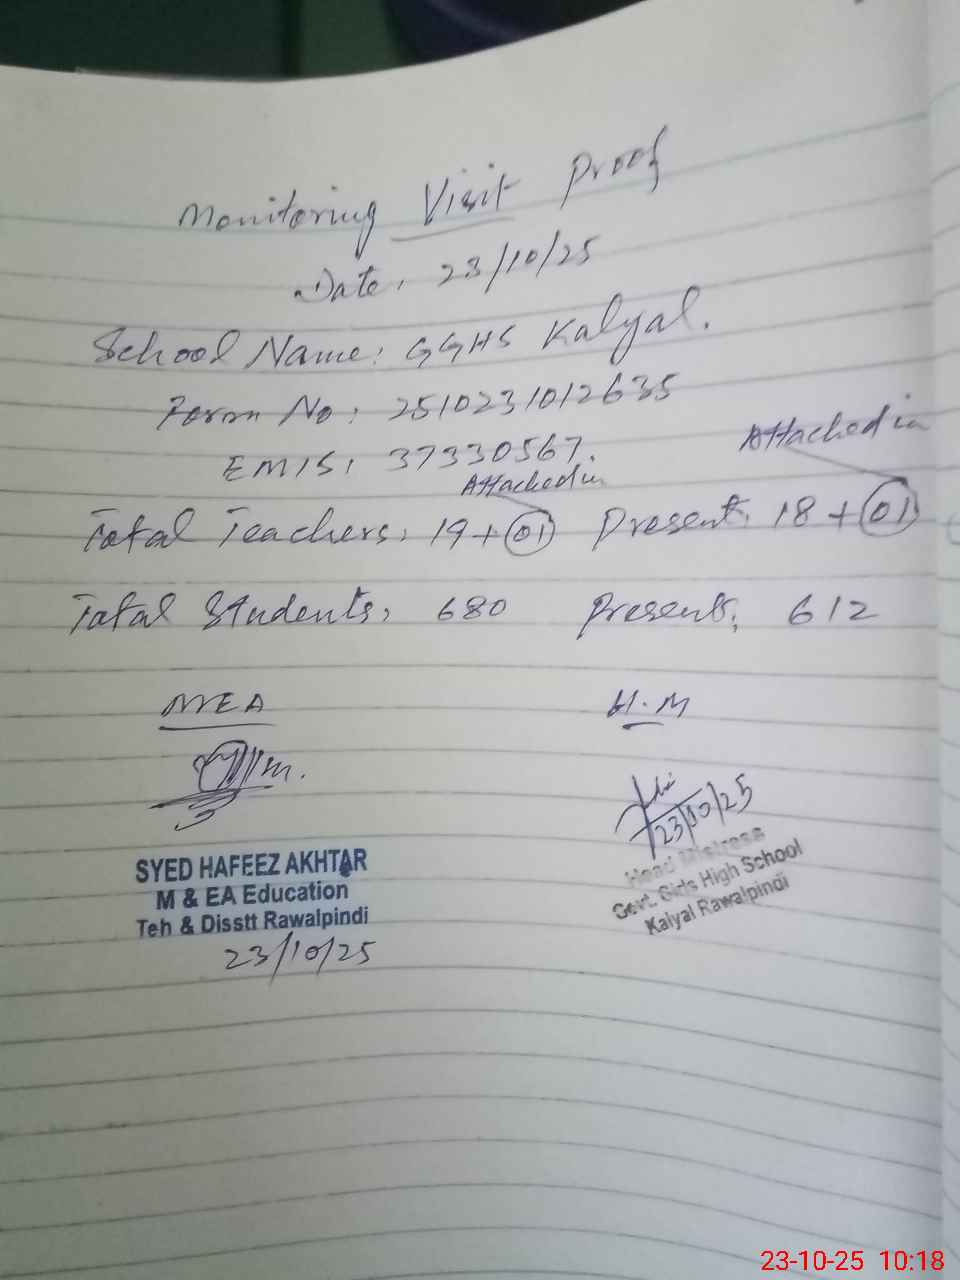 Monitoring Visit Proof
Date: 23/10/25
School Name: GGHS Kalyal.
Form No: 2510231012635
EMIS: 37330567.
Attached in
Attached in
Total Teachers: 19+01 Present: 18+01
Total Students: 680 Present: 612
MEA
H.M
23/10/25
SYED HAFEEZ AKHTAR
M & EA Education
Teh & Disstt Rawalpindi
23/10/25
Head Mistress
Govt. Girls High School
Kalyal Rawalpindi
23-10-25 10:18